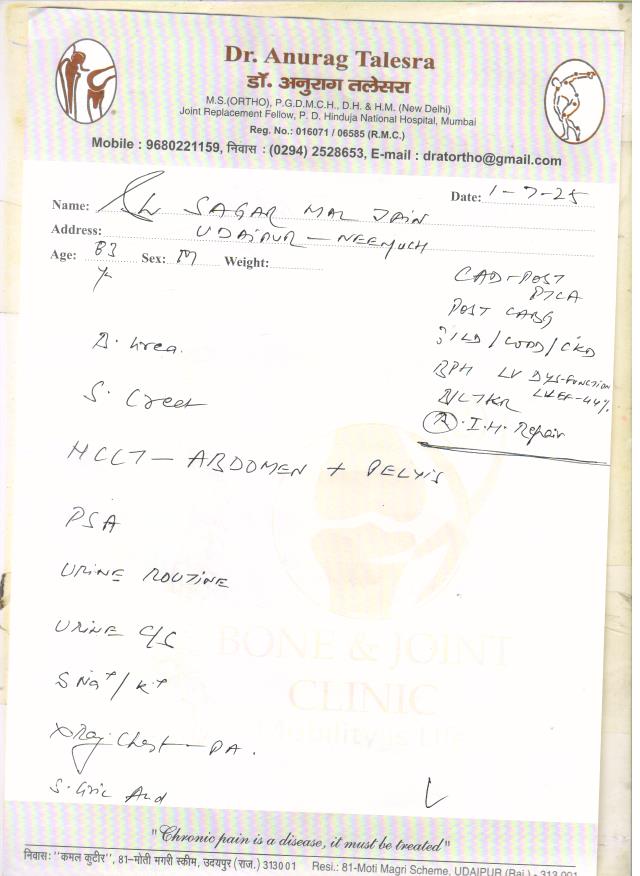 Dr. Anurag Talesra
डॉ. अनुराग तलेसरा
M.S.(ORTHO), P.G.D.M.C.H., D.H. & H.M. (New Delhi)
Joint Replacement Fellow, P. D. Hinduja National Hospital, Mumbai
Reg. No.: 016071 / 06585 (R.M.C.)
Mobile : 9680221159, निवास : (0294) 2528653, E-mail : dratortho@gmail.com
Date: 1-7-25
Name: SAGAR MAL JAIN
Address: UDAIPUR - NEEMUCH
Age: 83 Sex: M Weight:
CAD-POST
PTCA
POST CABG
ILD / COPD / CKD
BPH LV DYS-FUNCTION
B/L TKR LVEF-44%
R. I.H. Repair
B. Urea.
S. Creat
HCCT - ABDOMEN + PELVIS
PSA
URINE ROUTINE
URINE C/S
S Na+/K+
XRay Chest - PA.
S. Uric Acid
BONE & JOINT
CLINIC
Mobility is Life
"Chronic pain is a disease, it must be treated"
निवास: "कमल कुटीर", 81-मोती मगरी स्कीम, उदयपुर (राज.) 313001 Resi.: 81-Moti Magri Scheme, UDAIPUR (Raj.) - 313 001